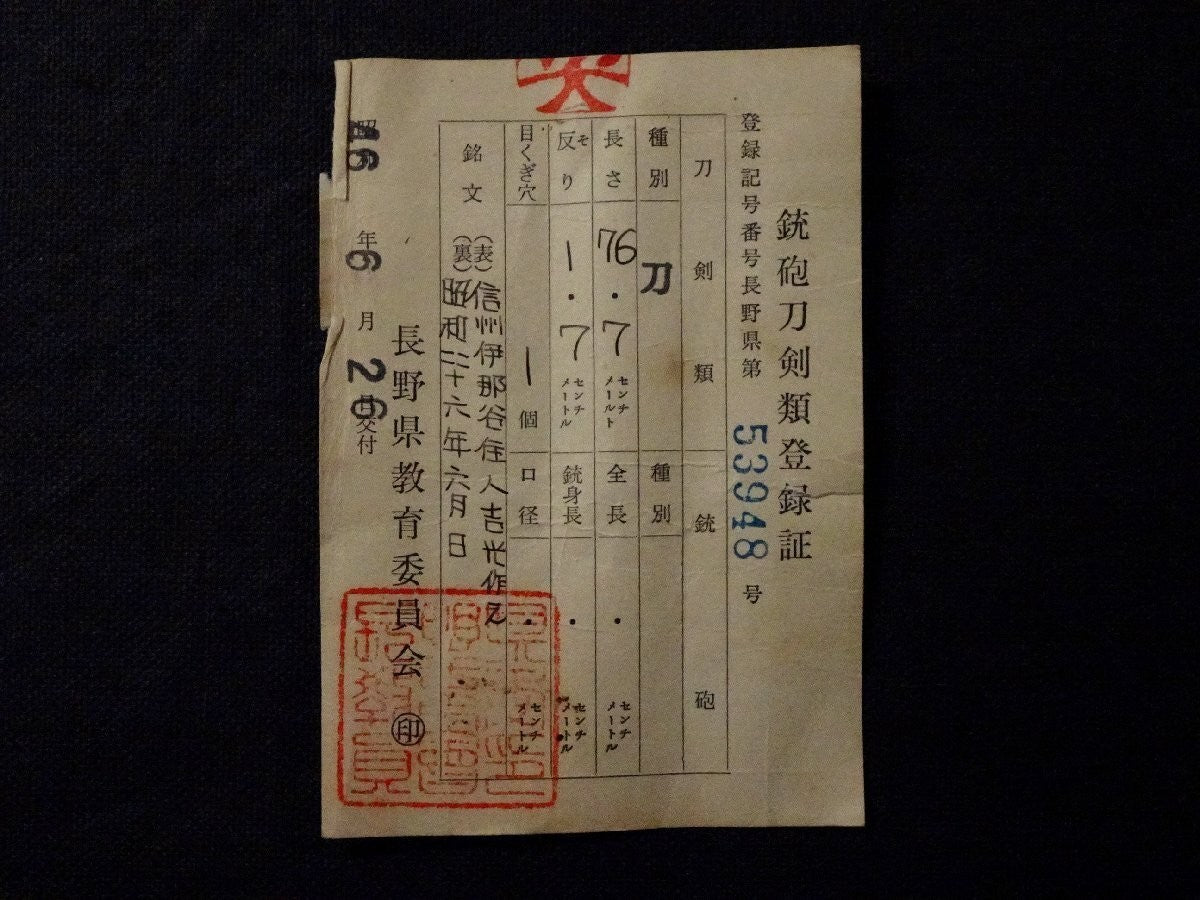 銃砲刀剣類登録証
登録記号番号長野県第 53948 号
刀剣類
銃砲
種別 刀
種別
長さ 76.7 センチメートル
全長 . センチメートル
反り ソ 1.7 センチメートル
銃身長 . センチメートル
目くぎ穴 1 個
口径 . センチメートル
銘文 (表) 信州伊那谷住人吉光作之
(裏) 昭和四十六年六月日
長野県教育委員会 ㊞
昭和 46 年 6 月 26 日交付